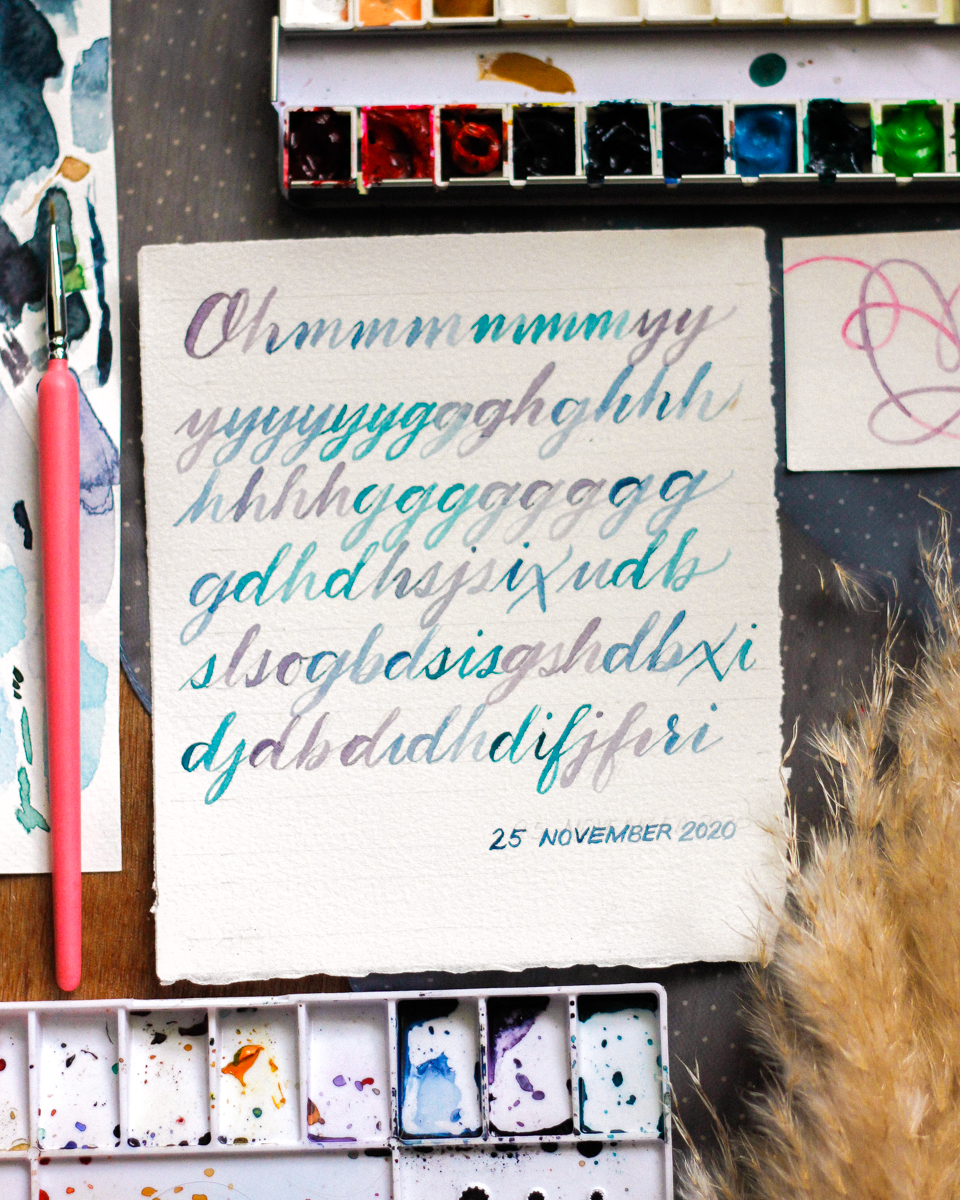 Ohmmmmmmyy
yyyyyyggghghhh
hhhhgggggggg
gdhdhsjsixudb
slsogbdsisgshdbxi
djdbdidhdifjfiri
25 NOVEMBER 2020